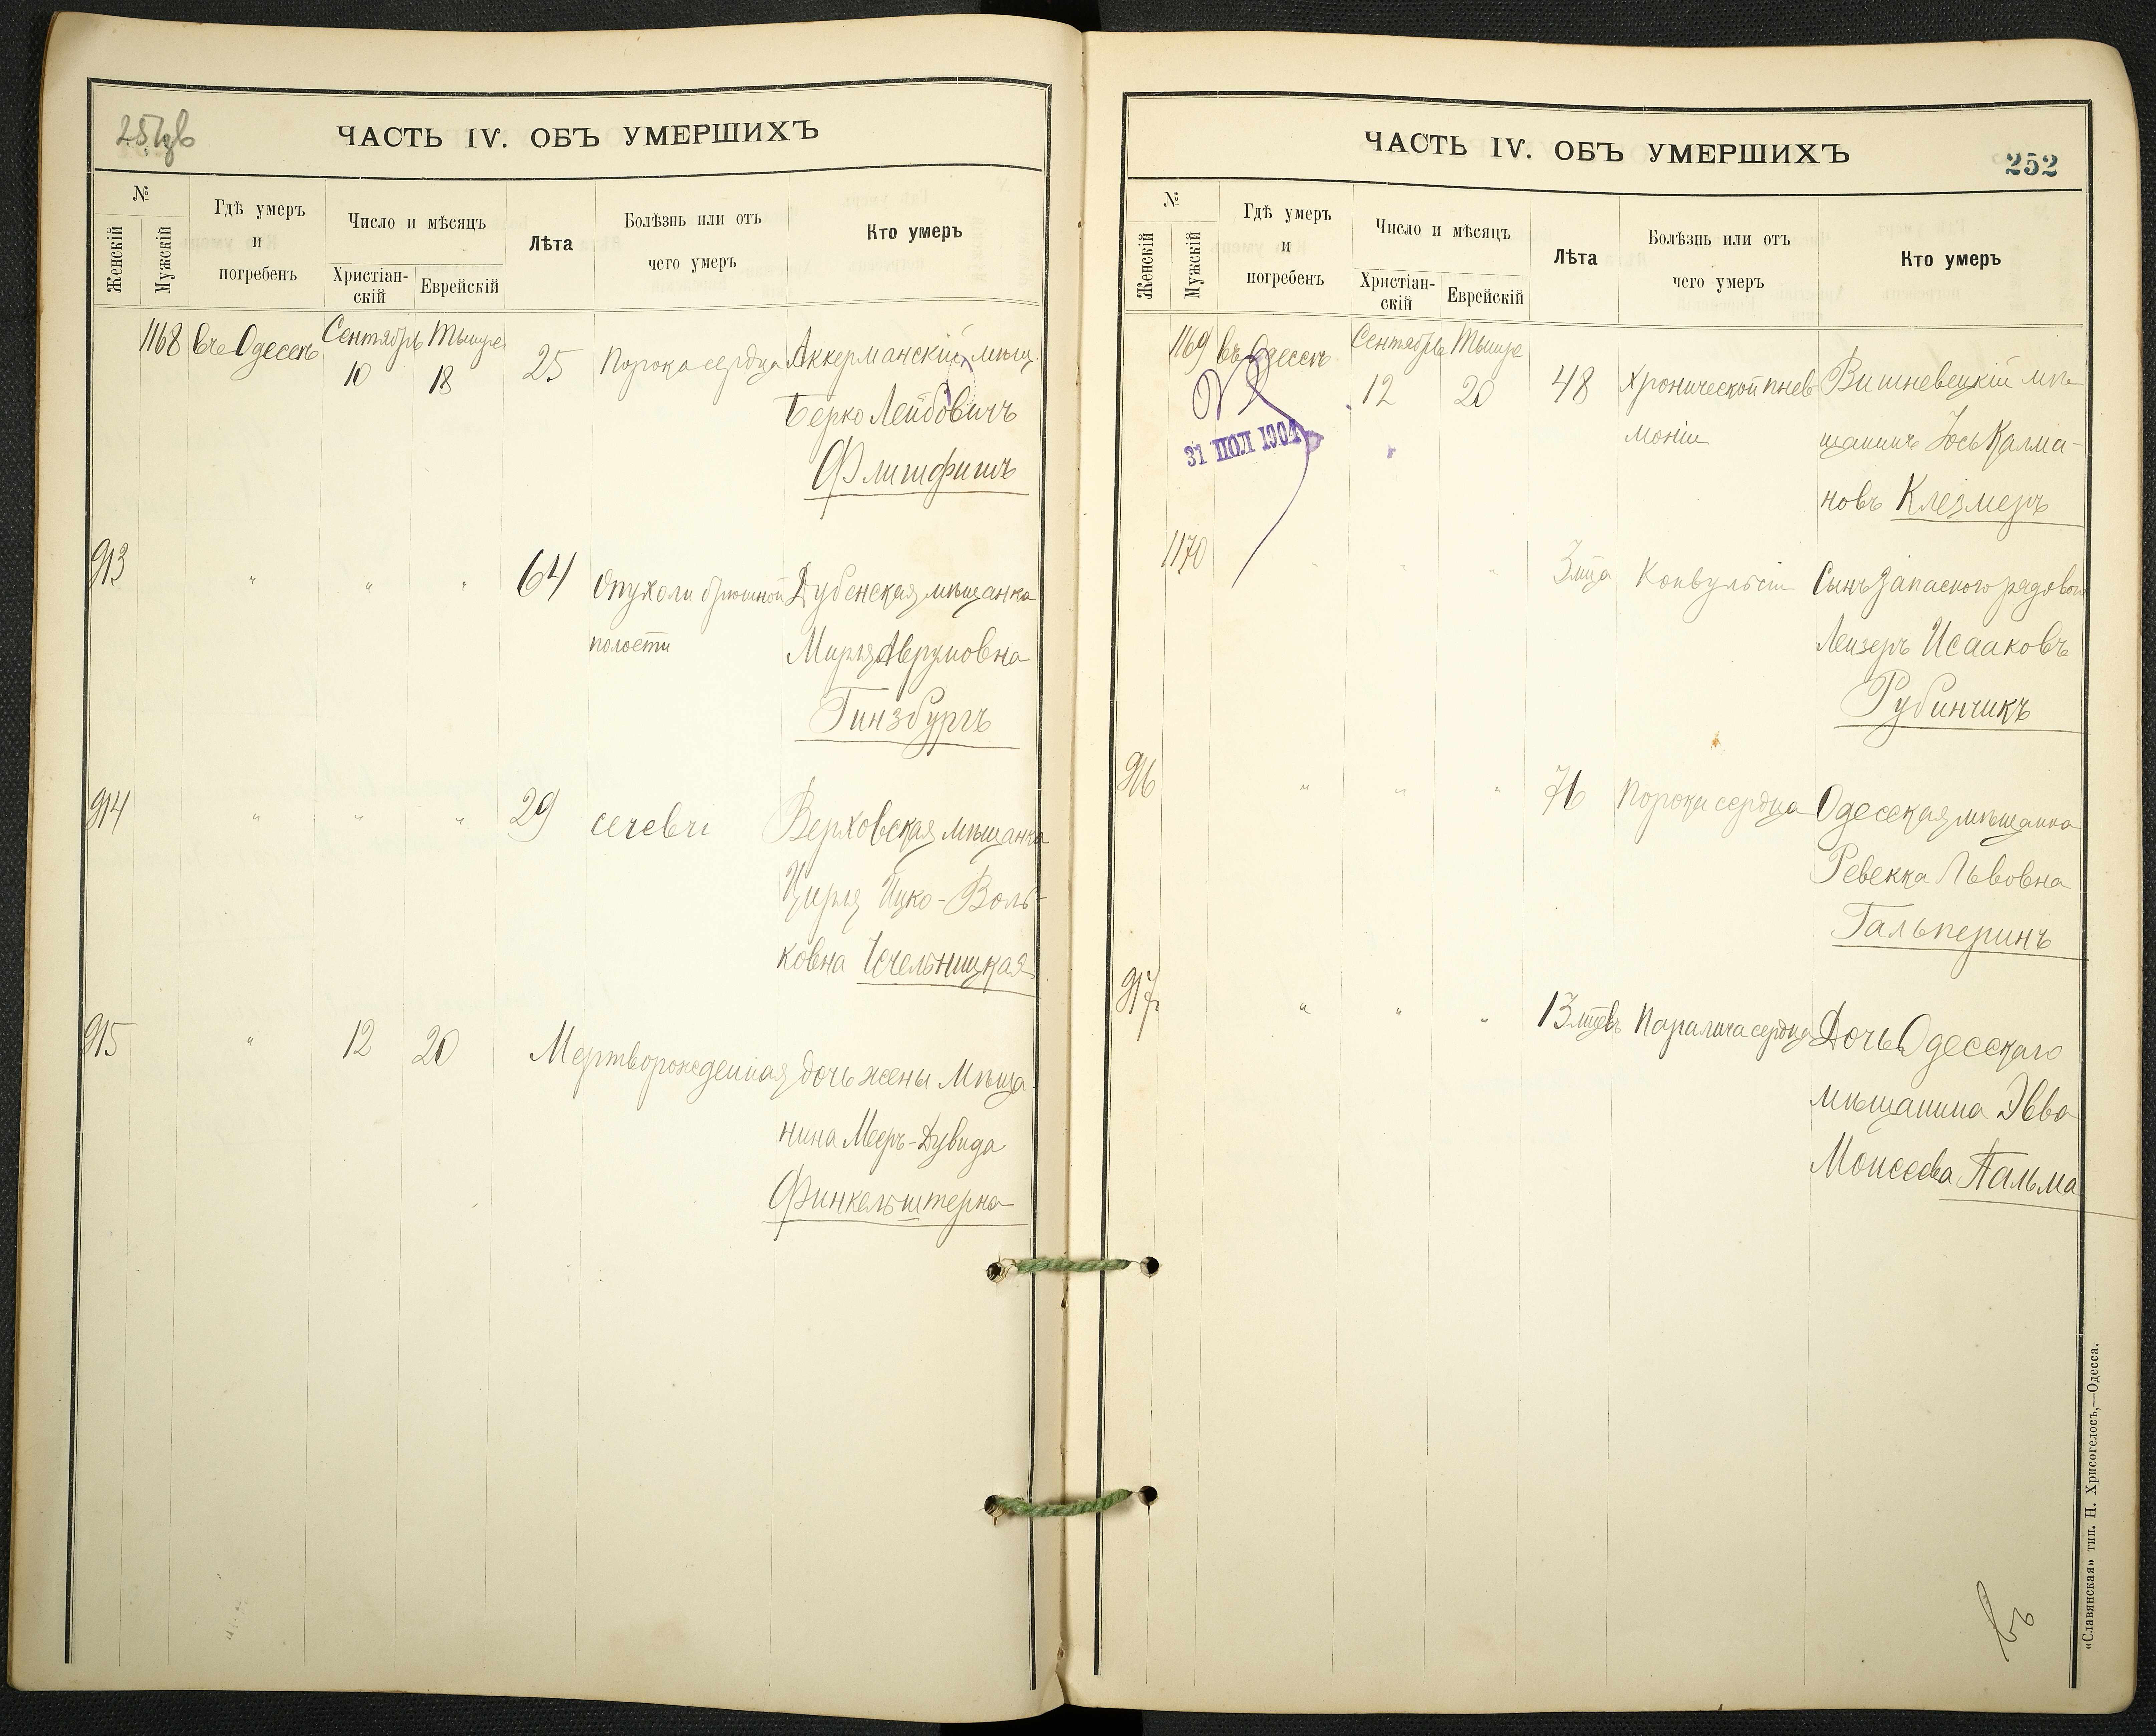 ЧАСТЬ IV. ОБЪ УМЕРШИХЪ
№
Женскій
Мужскій
Гдѣ умеръ
и
погребенъ
Число и мѣсяцъ
Христіан-
скій
Еврейскій
Лѣта
Болѣзнь или отъ
чего умеръ
Кто умеръ
1168 въ Одессѣ Сентябрь 10 Тышре 18 25 Порока сердца Аккерманскій мѣщ.
Берко Лейбовичъ
Флишфишъ
913 " " " 64 Опухоли брюшной Дубенская мѣщанка
полости Мирля Аврумовна
Гинзбургъ
914 " " " 29 Верховская мѣщанка
Цирля Ицко-Воль-
ковна
915 " 12 20 Мертворожденная дочь жены мѣща-
нина Меер-Дувида
Финкельштерна
ЧАСТЬ IV. ОБЪ УМЕРШИХЪ
252
№
Женскій
Мужскій
Гдѣ умеръ
и
погребенъ
Число и мѣсяцъ
Христіан-
скій
Еврейскій
Лѣта
Болѣзнь или отъ
чего умеръ
Кто умеръ
1169 въ Одессѣ Сентябрь 12 Тышре 20 48 Хронической пнев- Вишневецкій мѣ-
моніи щанинъ Іось Калма-
новъ Клезмеръ
31 ІЮЛ 1904
1170 " " " 3 мца Конвульсіи Сынъ запасного рядового
Лейзеръ Исааковъ
Рубинчикъ
916 " " " 76 Порока сердца Одесская мѣщанка
Ревекка Львовна
Гальперинъ
917 " " " 13 мцевъ Паралича сердца Дочь Одесскаго
мѣщанина Эвва
Моисеева Пальма
«Славянская» тип. Н. Хрисогелосъ,—Одесса.